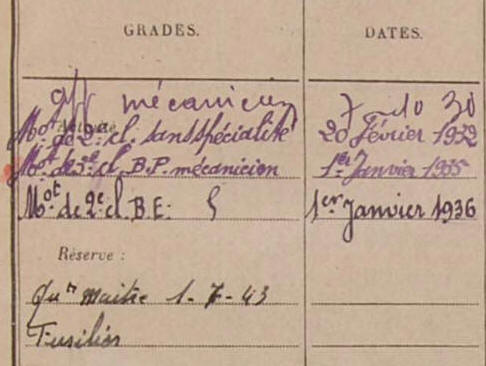 GRADES. DATES.
app mécanicien 7-10 30
Mot de 2e cl. sans spécialité 20 Février 1932
Mot de 2e cl. B.P. mécanicien 1er Janvier 1935
Mot de 2e cl. B.E. 1er Janvier 1936
Réserve :
Qur maitre 1-7-43
Fusilier